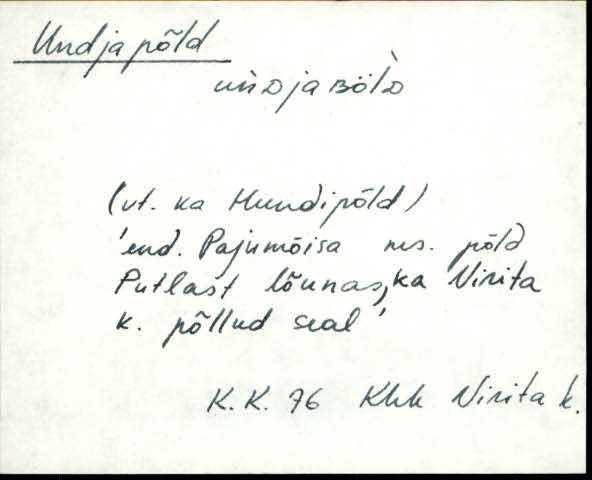 Undja põld
unDjaBõlD
(vt. ka Hundipõld)
'end. Pajumõisa ms. põld
Putlast lõunas, ka Ninita
k. põllud seal'
K.K. 76 Khk Ninita k.